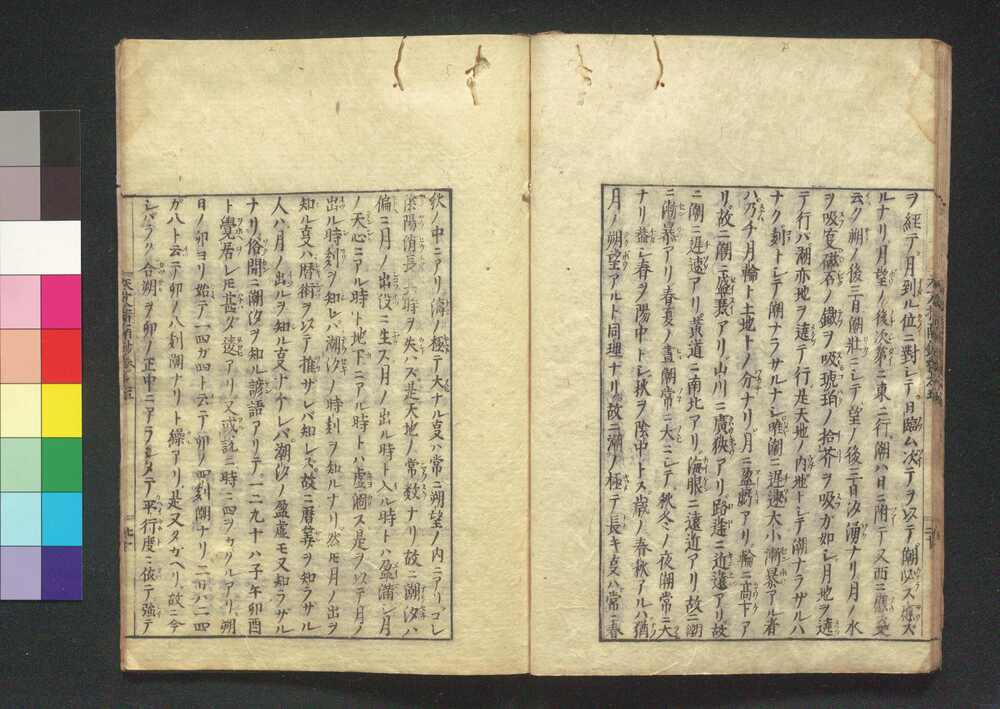 ヲ經テ月到ル位ニ對シテ日臨ム次テヲ以テ潮必ス應大
ルナリ月望ノ後次第ニ東ニ行潮ハ日ニ附テス西ニ
云ク朔ノ後三日潮壯ニシテ望ノ後三日汐湧ナリ月ノ水
ヲ吸叓磁石ノ鐡ヲ吸琥珀ノ拾芥ヲ吸カ如シ月地ヲ遶
テ行バ潮亦地ヲ遶テ行是天地ノ内地トシテ潮ナラサルハ
ナク刻トシテ潮ナラサルナシ唯潮ニ遅速大小漸暴アル者
ハ乃チ月輪ト土地トノ分ナリ月ニ盈虧アリ輪ニ高下ア
リ故ニ潮ニ盛衰アリ山川ニ廣狹アリ路遙ニ近遠アリ故
ニ潮ニ遅速アリ黄道ニ南北アリ海眼ニ遠近アリ故ニ潮
ニ漸暴アリ春夏ノ晝潮常ニ大ニシテ秋冬ノ夜潮常ニ大
ナリ蓋シ春ヲ陽中トシ秋ヲ陰中トス歳ノ春秋アルハ猶
月ノ朔望アルト同理ナリ故ニ潮ノ極テ長キ叓ハ常ニ春
秋ノ中ニアリ濤ノ極テ大ナル叓ハ常ニ潮望ノ内ニアリコレ
陰陽消長ノ時ヲ失ハス是天地ノ常数ナリ故ニ潮汐ハ
偏ニ月ノ出没ニ生ス月ノ出ル時入ル時トハ盈滿シ月
ノ天心ニアル時ト地下ニアル時トハ虚涸ス是ヲ以テ月ノ
出ル時刻ヲ知レバ潮汐ノ時刻ヲ知ルナリ然モ月ノ出ヲ
知ル叓ハ暦術ヲ以テ推サレバ知レズ故ニ暦筭ヲ知ラサル
人ハ月ノ出ルヲ知ル叓ナケレバ潮汐ノ盈虚モ又知ラサル
ナリ俗間ニ潮汐ヲ知ル諺語アリテ一二九十ハ子午卯酉
ト覺居レモ甚ダ遠アリ又或説ニ時ニ四ヲカクルアリ朔
日ノ卯ヨリ始テ一四カ四ト云テ卯ノ四刻潮ナリ二日ハ二四
ガ八ト云テ卯ノ八刻潮ナリト繰アリ是又タガヘリ故ニ今
シバラク合朔ヲ卯ノ正中ニアラシメテ平行度ニ依テ強テ